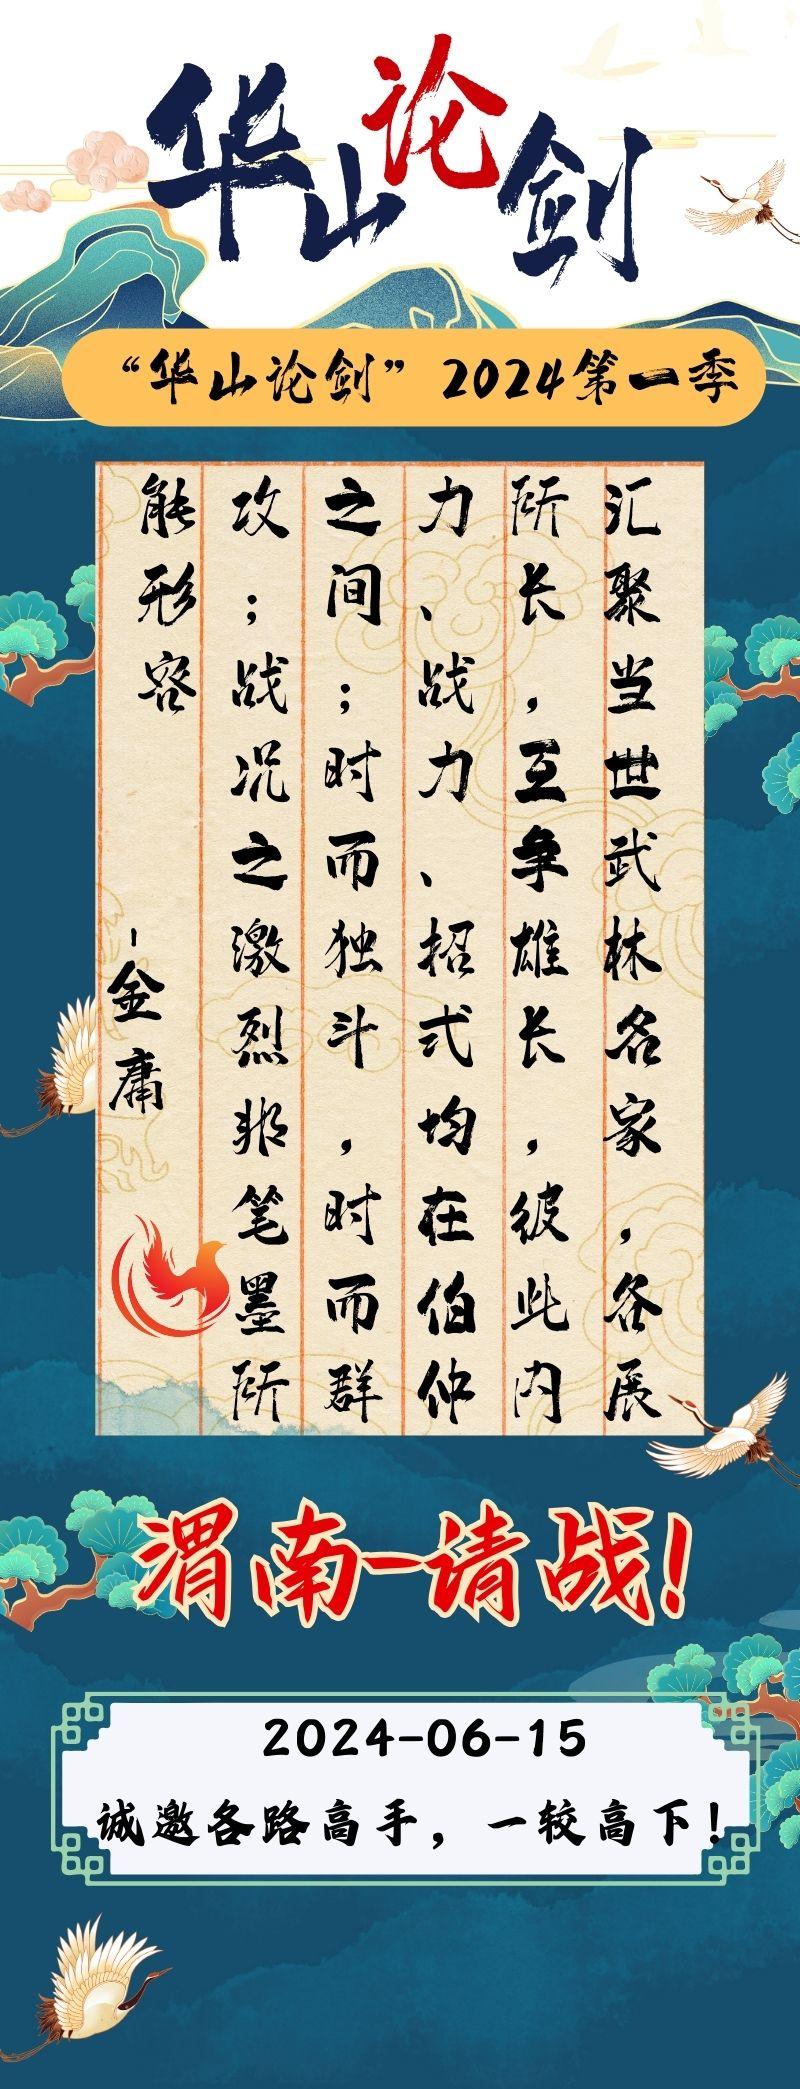 华山论剑
“华山论剑”2024第一季
汇聚当世武林名家，各展
所长，互争雄长，彼此内
力、战力、招式均在伯仲
之间；时而独斗，时而群
攻；战况之激烈非笔墨所
能形容
-金庸
渭南-请战!
2024-06-15
诚邀各路高手，一较高下!